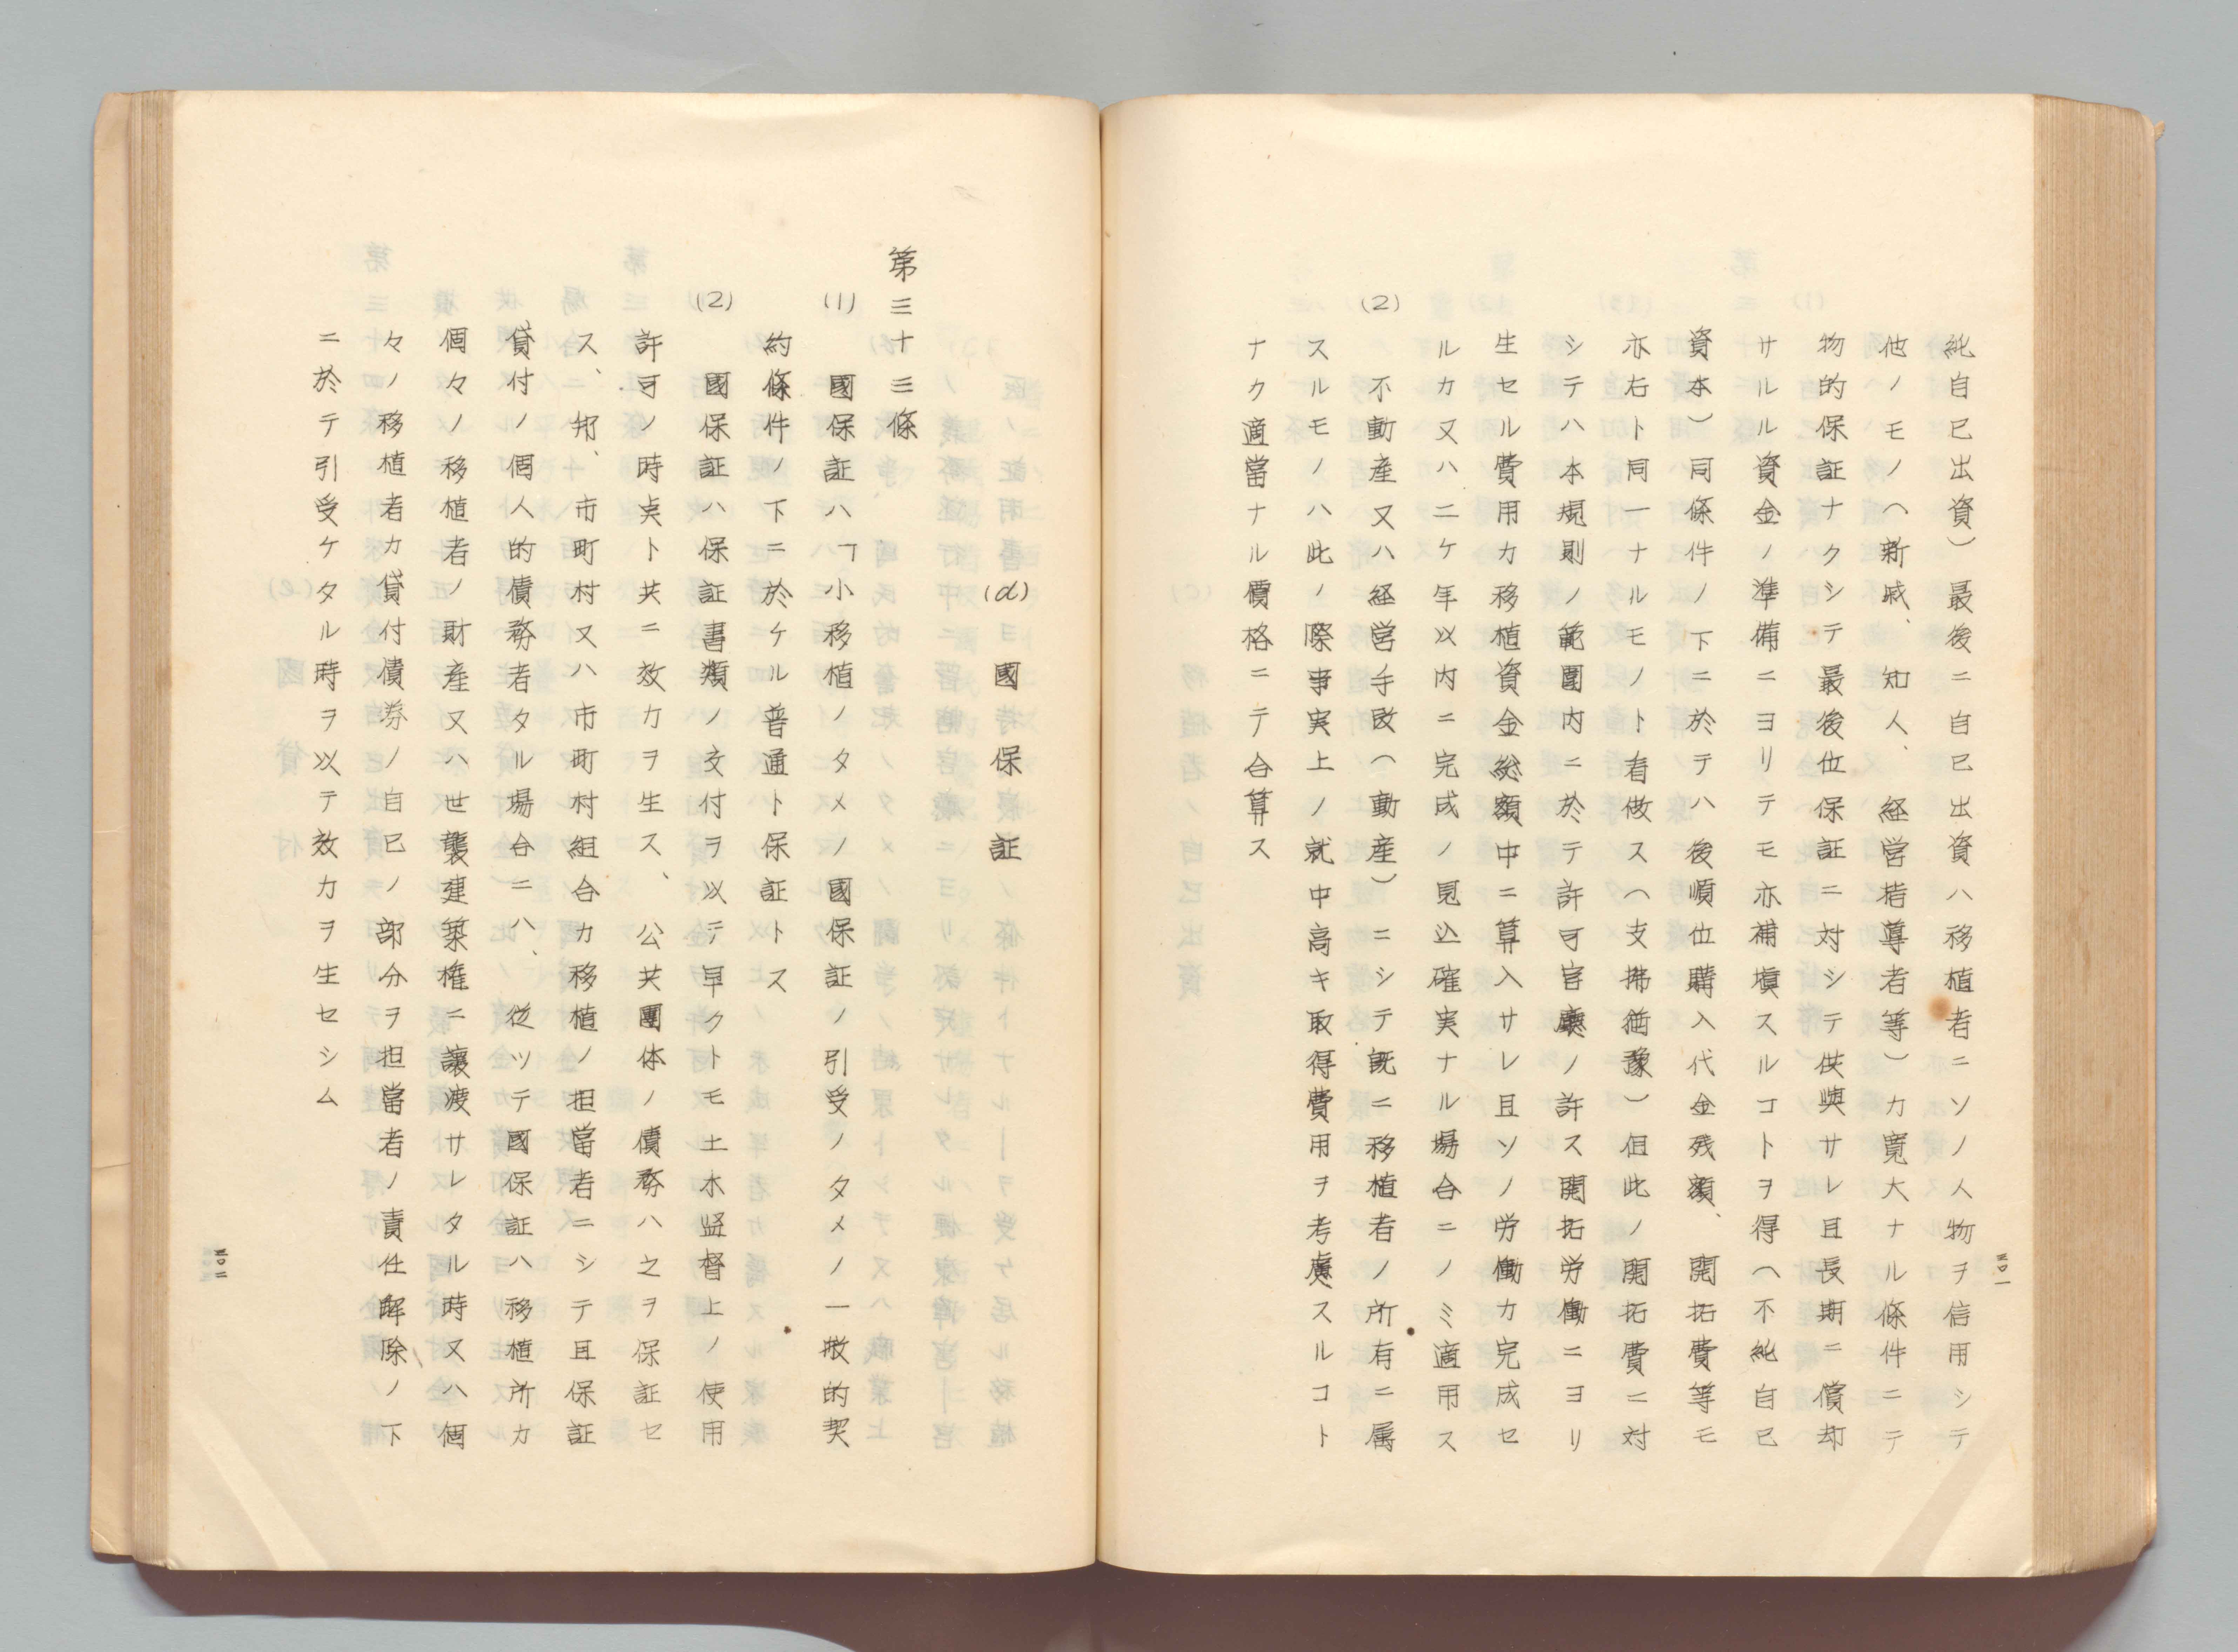 純自己出資）最後ニ自己出資ハ移植者ニソノ人物ヲ信用シテ
他ノモノ（新戚、知人、経営指導者等）カ寛大ナル條件ニテ
物的保証ナクシテ最後位保証ニ対シテ供與サレ且長期ニ償却
サルル資金ノ準備ニヨリテモ亦補塡スルコトヲ得（不純自己
資本）同條件ノ下ニ於テハ後順位購入代金残額、開拓費等モ
亦右ト同一ナルモノト看做ス（支拂猶豫）但此ノ開拓費ニ対
シテハ本規則ノ範圍内ニ於テ許可官廳ノ許ス開拓労働ニヨリ
生セル費用カ移植資金総額中ニ算入サレ且ソノ労働カ完成セ
ルカ又ハ二ケ年以内ニ完成ノ見込確実ナル場合ニノミ適用ス
(2) 不動産又ハ経営手段（動産）ニシテ既ニ移植者ノ所有ニ属
スルモノハ此ノ際事実上ノ就中高キ取得費用ヲ考慮スルコト
ナク適當ナル價格ニテ合算ス
二〇一
(d) 國保証
第三十三條
(1) 國保証ハ「小移植ノタメノ國保証ノ引受ノタメノ一般的契
約條件ノ下ニ於ケル普通ト保証トス
(2) 國保証ハ保証書類ノ交付ヲ以テ早クトモ土木監督上ノ使用
許可ノ時点ト共ニ效力ヲ生ス、公共團体ノ債務ハ之ヲ保証セ
ス、邦、市町村又ハ市町村組合カ移植ノ担當者ニシテ且保証
貸付ノ個人的債務者タル場合ニハ、従ツテ國保証ハ移植所カ
個々ノ移植者ノ財産又ハ世襲建築権ニ讓渡サレタル時又ハ個
々ノ移植者カ貸付債券ノ自己ノ部分ヲ担當者ノ責任解除ノ下
ニ於テ引受ケタル時ヲ以テ效力ヲ生セシム
二〇二